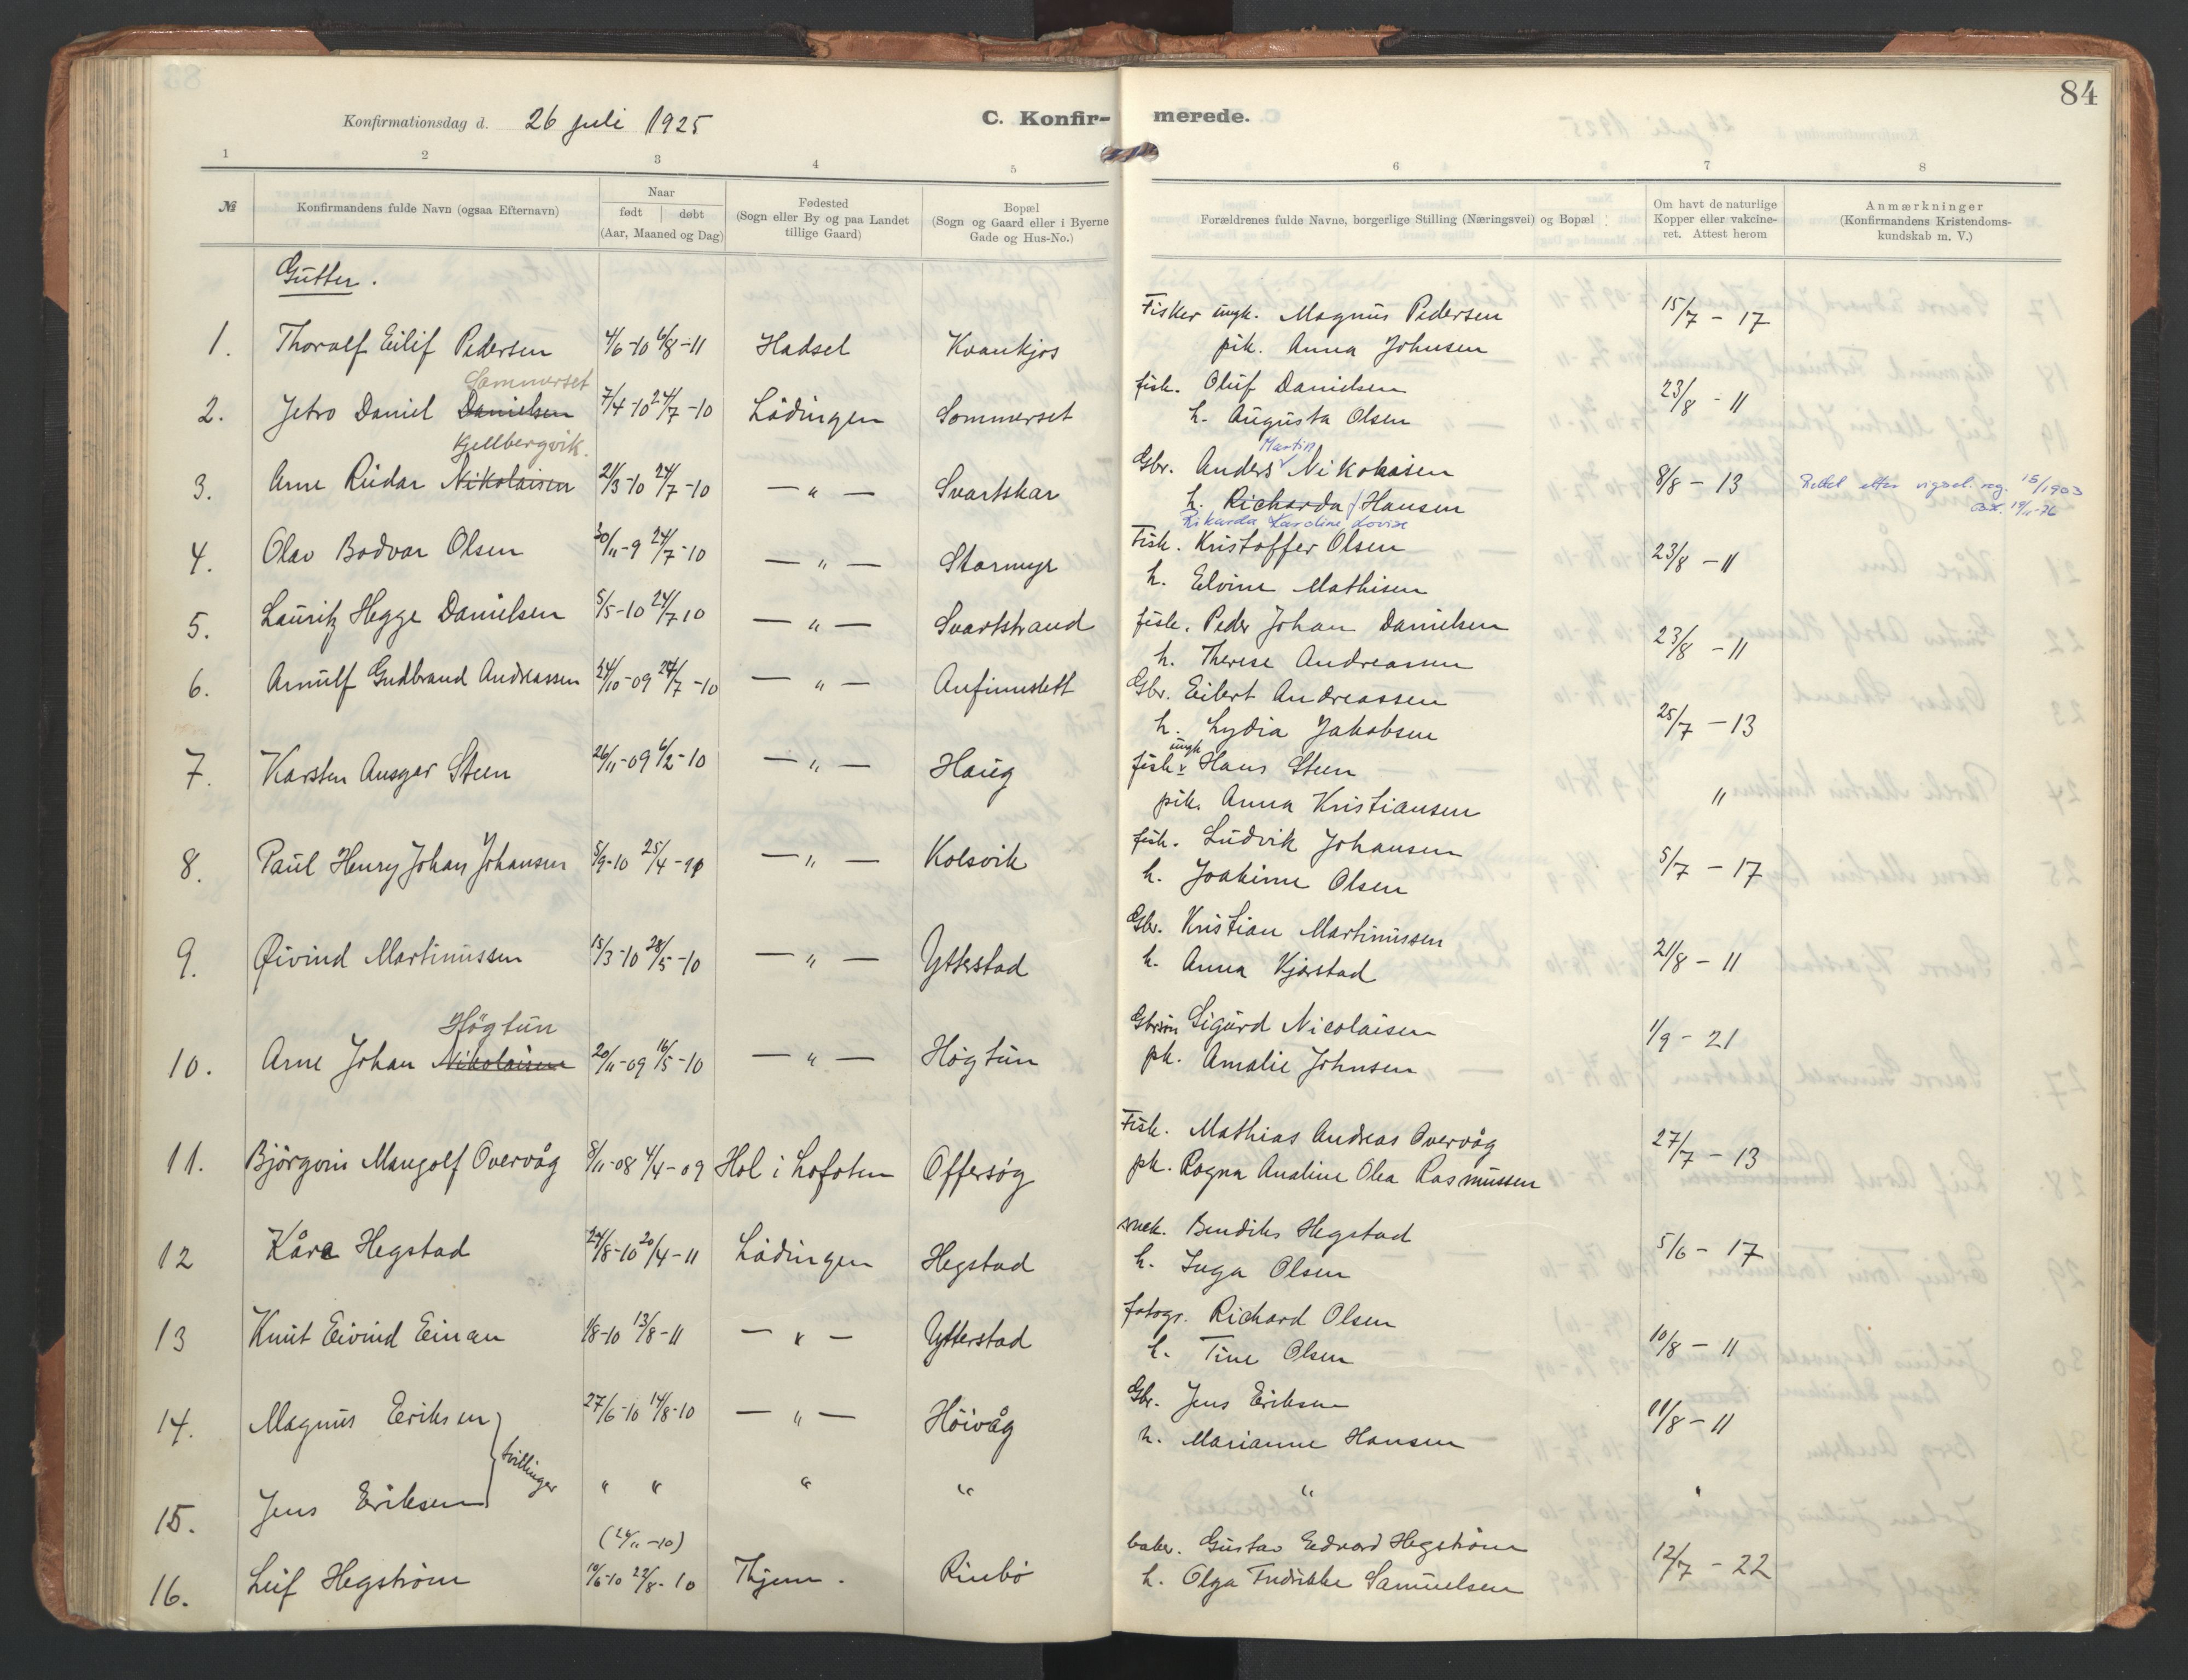 84
Konfirmationsdag d. 26 juli 1925
C. Konfir-merede.
1 2 3 4 5 6 7 8
№ Konfirmandens fulde Navn (ogsaa Efternavn)
Naar
født | døbt
(Aar, Maaned og Dag)
Fødested
(Sogn eller By og paa Landet
tillige Gaard)
Bopæl
(Sogn og Gaard eller i Byerne
Gade og Hus-No.)
Forældrenes fulde Navne, borgerlige Stilling (Næringsvei) og Bopæl
Om havt de naturlige
Kopper eller vakcine-
ret. Attest herom
Anmærkninger
(Konfirmandens Kristendoms-
kundskab m. V.)
Gutter.
Fisker ungk. Magnus Pedersen 15/7 - 17
1. Thoralf Eilif Pedersen 4/6-10 6/8-11 Hadsel Kvankjos
pik. Anna Johnsen
Sommerset
fisk. Oluf Danielsen
2. Jetro Daniel Danielsen 7/4-10 24/7-10 Lødingen Sommerset 23/8 - 11
h. Augusta Olsen
Kjellbergvik.
Martin
Gbr. Anders Nikolaisen
3. Arne Reidar Nikolaisen 21/3-10 24/7-10 — " — Svartskar 8/8 - 13 Rettet etter vigsel. reg. 15/1903
h. Richarda Hansen
19/11-76
Rikarda Karoline Lovise
Fisk. Kristoffer Olsen
4. Olav Bodvar Olsen 30/11-9 24/7-10 — " — Stormyr 23/8 - 11
h. Elvine Mathisen
5. Lauritz Hegge Danielsen 5/5-10 24/7 10 — " — Svartstrand
fisk. Peder Johan Danielsen 23/8 - 11
h. Therese Andreassen
6. Arnulf Gudbrand Andreassen 24/10-09 24/7-10 — " — Anfinnslett
Gbr. Eilert Andreassen
h. Lydia Jakobsen 25/7 - 13
ungk
7. Karsten Ansgar Steen 26/11-09 6/2-10 — " — Haug
fisk. Hans Steen
pik. Anna Kristiansen "
8. Paul Henry Johan Johansen 5/9-10 25/4 — " — Kolsvik
fisk. Ludvik Johansen
h. Joakime Olsen 5/7 - 17
9. Øivind Martinussen 15/3-10 28/5-10 — " — Ytterstad
Gbr. Kristian Martinussen
h. Anna Kjørstad 21/8 - 11
Högtun
10. Arne Johan Nikolaisen 20/11-09 16/5-10 — " — Högtun
Gbrsøn Sigurd Nicolaisen 1/9 - 21
pk. Amalie Johnsen
11. Björgvin Mangolf Overvåg 8/11-08 4/4-09 Hol i Lofoten Offersøg
Fisk. Mathias Andreas Overvåg 27/7 - 13
pk. Ragna Analine Olea Rasmussen
12 Kåre Hegstad 24/8-10 20/4-11 Lødingen Hegstad
snek. Bendiks Hegstad
h. Inga Olsen 5/6 - 17
13 Knut Eivind Einan 1/8-10 13/8-11 — " — Ytterstad
fotogr. Richard Olsen
h. Tine Olsen 10/8 - 11
14. Magnus Eriksen 27/6-10 14/8-10 — " — Höivåg
Gbr. Jens Eriksen
h. Marianne Hansen 11/8 - 11
tvillinger
15. Jens Eriksen " " " " " "
(24/11-10)
16. Leif Hegström 19/6-10 22/8-10 Thjem. Rinbø
baker. Gustav Edvard Hegström
h. Olga Fredrikke Samuelsen 12/7 - 22